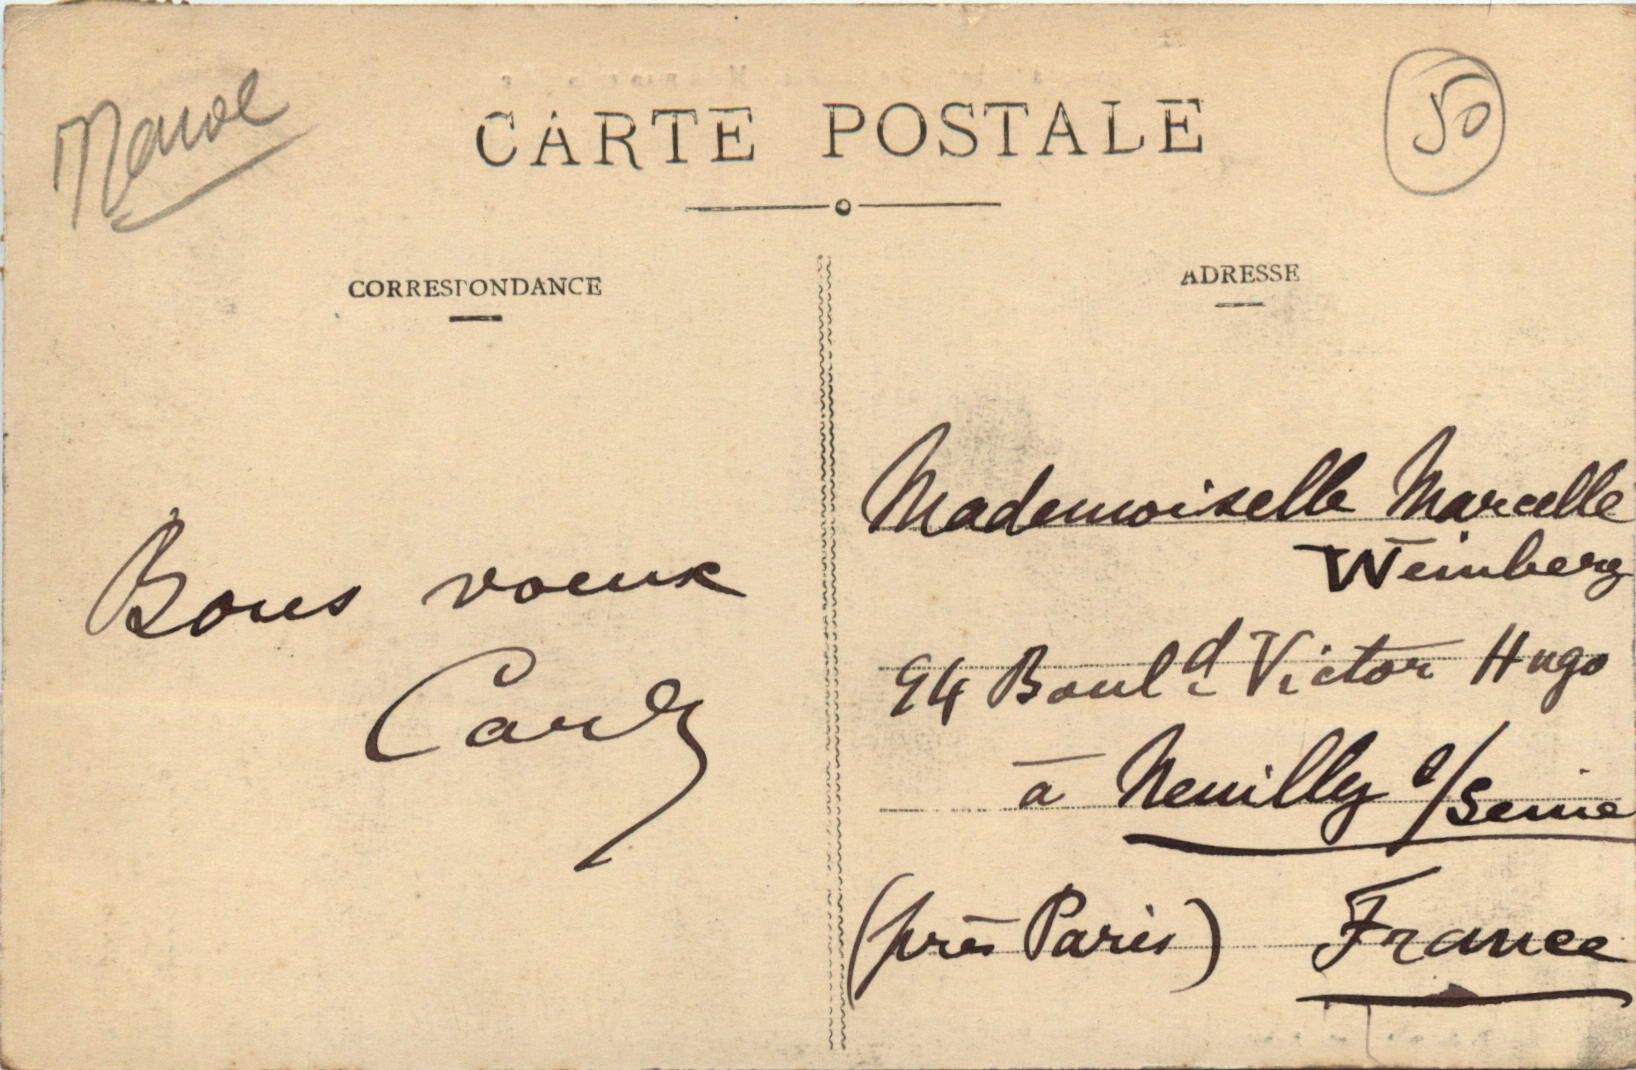 Maroc
CARTE POSTALE
50
CORRESPONDANCE
ADRESSE
Bons voeux
Carly
Mademoiselle Marcelle
Weinberg
94 Boul.d Victor Hugo
à Neuilly s/Seine
(près Paris) France